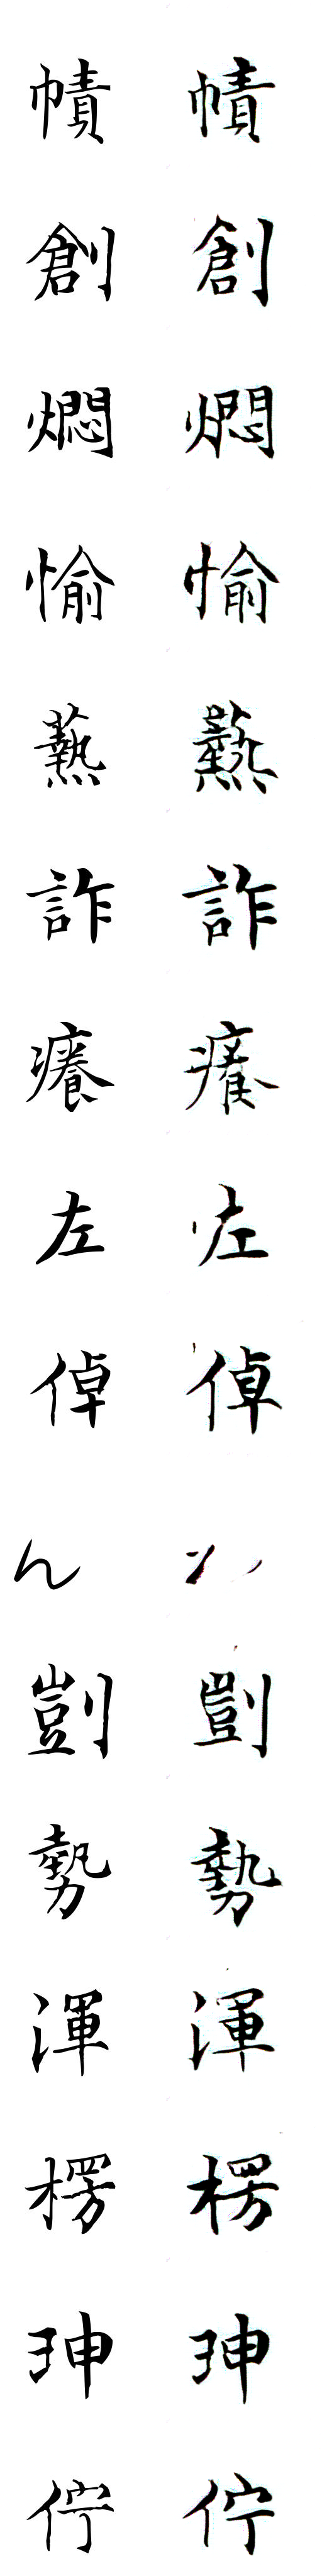 幘 幘
創 創
燜 燜
愉 愉
爇 爇
詐 詐
癢 癢
左
倬 倬
ん
剴 剴
勢 勢
渾 渾
楞 楞
珅 珅
佇 佇